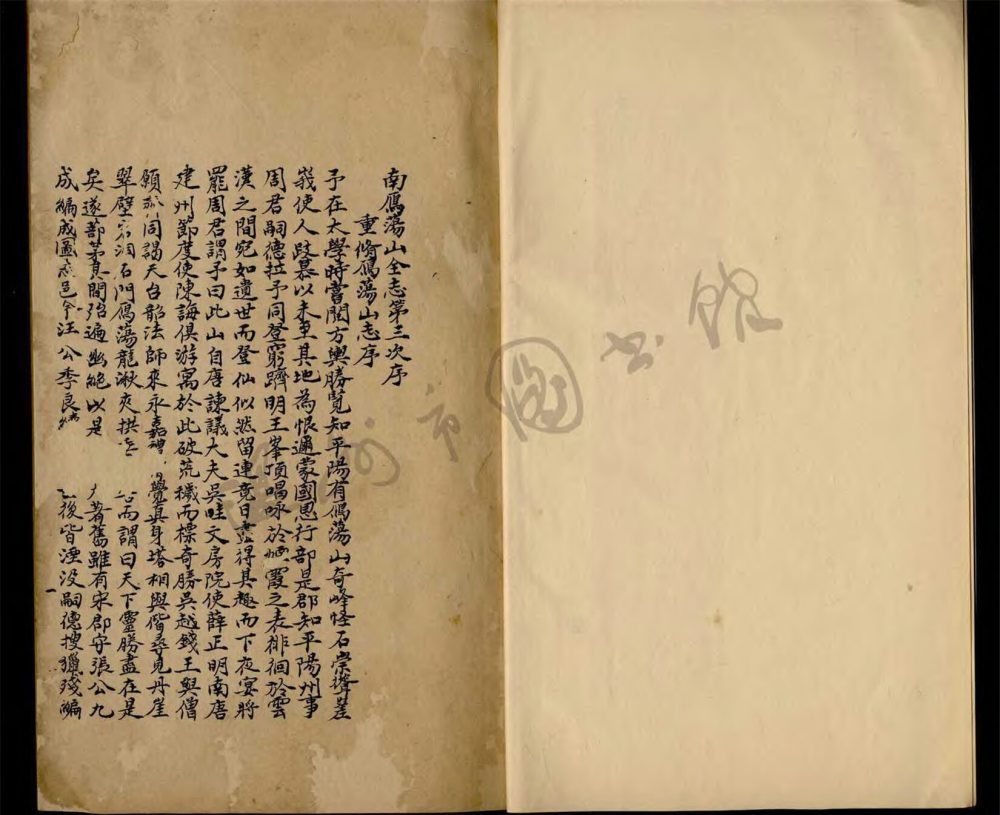 南鴈蕩山全志第三次序
重脩鴈蕩山志序
予在太學時嘗閱方輿勝覽知平陽有鴈蕩山奇峰怪石崇聳差
峩使人跂慕以未至其地為恨邇蒙國恩行部是郡知平陽州事
周君嗣德拉予同登窮躋明王峯頂唱咏於栖霞之表徘徊於雲
漢之間宛如遺世而登仙似然留連竟日盡得其趣而下夜宴將
罷周君謂予曰此山自唐諫議大夫吳畦文房院使薛正明南唐
建州節度使陳誨俱游寓於此破荒穢而標奇勝吳越錢王與僧
願同謁天台韶法師來永嘉禮覺真身塔相與偕尋見丹崖
翠壁石門鴈蕩龍湫夾拱而謂曰天下靈勝盡在是
矣遂薙茅其間殆遍幽絕以是耆舊雖有宋郡守張公九
成編成圖志邑令汪公季良後皆湮没嗣德搜獵殘編
州市圖书館